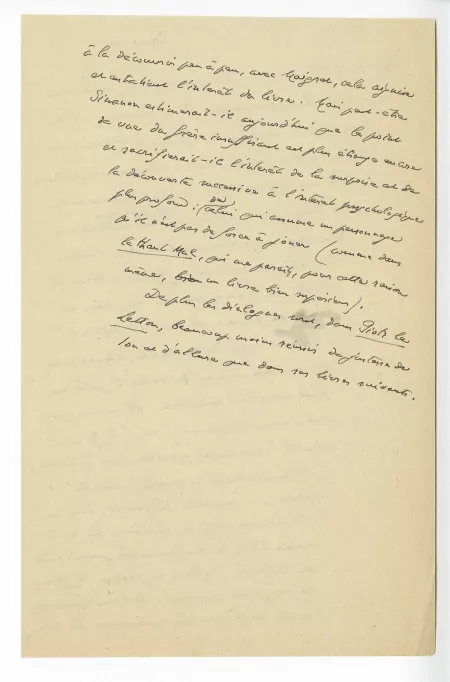 à la découvrir peu à peu, avec Maigret, cela aiguise
et entretient l'intérêt du livre. Mais peut-être
Simenon estimerait-il aujourd'hui que le point
de vue du frère insuffisant est plus étrange encore
et sacrifierait-il l'intérêt de la surprise et de
la découverte successive à l'intérêt psychologique
plus profond : de celui qui assume un personnage
qu'il n'est pas de force à jouer (comme dans
le Haut Mal, qui me paraît, pour cette raison
même, un livre bien supérieur).
De plus les dialogues sont, dans Pietr le
Letton, beaucoup moins réussis de justesse de
ton et d'allure que dans ses livres suivants.